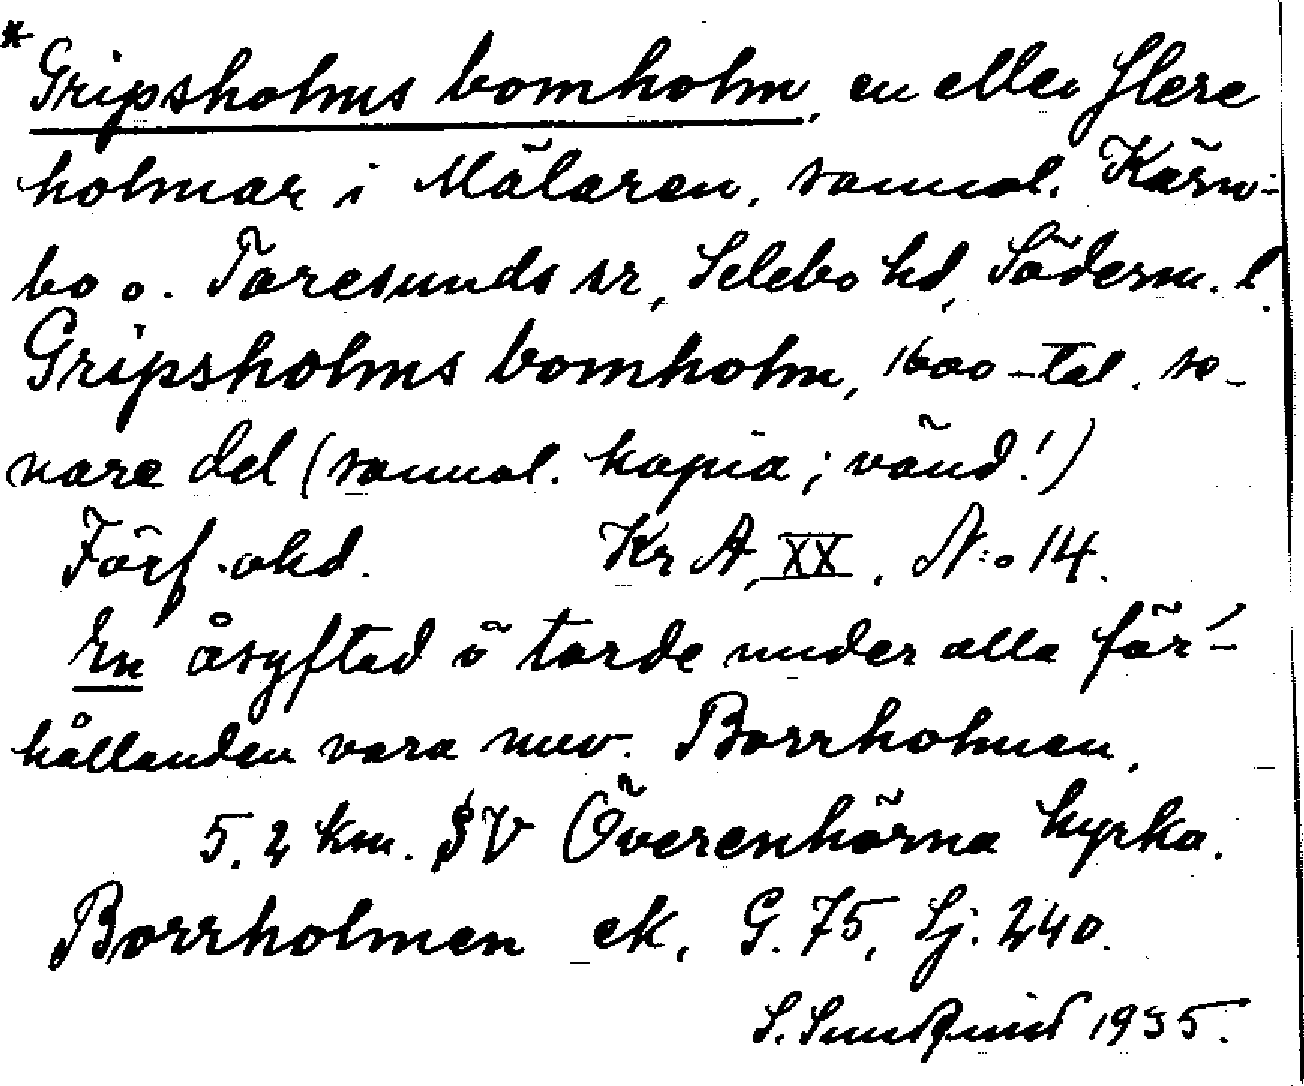 * Gripsholms bomholm, en eller flere
holmar i Mälaren, samnal. Kärn-
bo o. Taresunds sr, Selebo hd, Söderm. l.
Gripsholms bomholm, 1600-tal. se-
nare del (samnal. kopia; vänd!)
Jorf. okd. Kr A, XX, N:o 14.
En åsyftad ö torde under alla för-
hållanden vara nuv. Borrholmen,
5.2 km. SV Överenhörna kyrka.
Borrholmen ek, G. 75, Lj. 240.
S. Sundquist 1935.